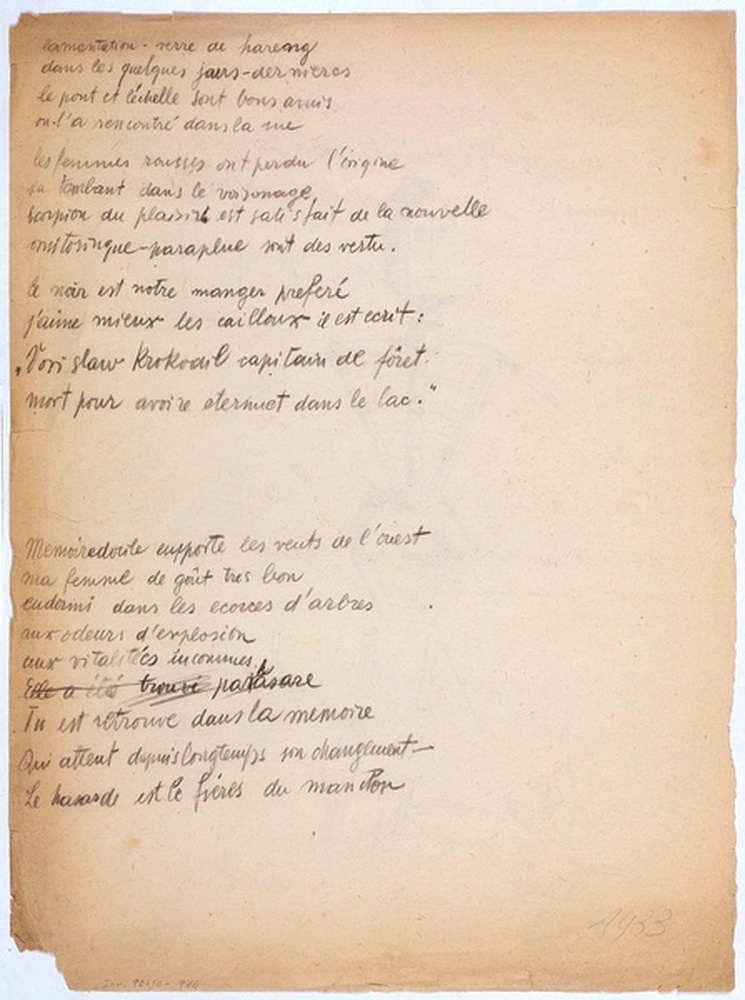 lamentation - verre de hareng
dans les quelques jours-dernieres
le pont et l'échelle sont bons amis
on-l'a rencontré dans la rue
les femmes rousses ont perdu l'origine
en tombant dans le voisonage
scorpion du plaisir est satisfait de la nouvelle
ornitoringue-parapluie sont des vertu.
le noir est notre manger preferé
j'aime mieux les cailloux il est ecrit:
„Vorislaw Krokodil capitain de fôret
mort pour avoire eternuet dans le lac.“
Memoiredocile emporte les vents de l'ouest
ma femme de goût tres bon
endormi dans les ecorces d'arbres
aux odeurs d'explosion
aux vitalités inconnues
Elle a été trouvé par hasare
Tu est retrouve dans la memoire
Qui attent depuis longtemps son changlement—
Le hasarde est le fréres du
1933